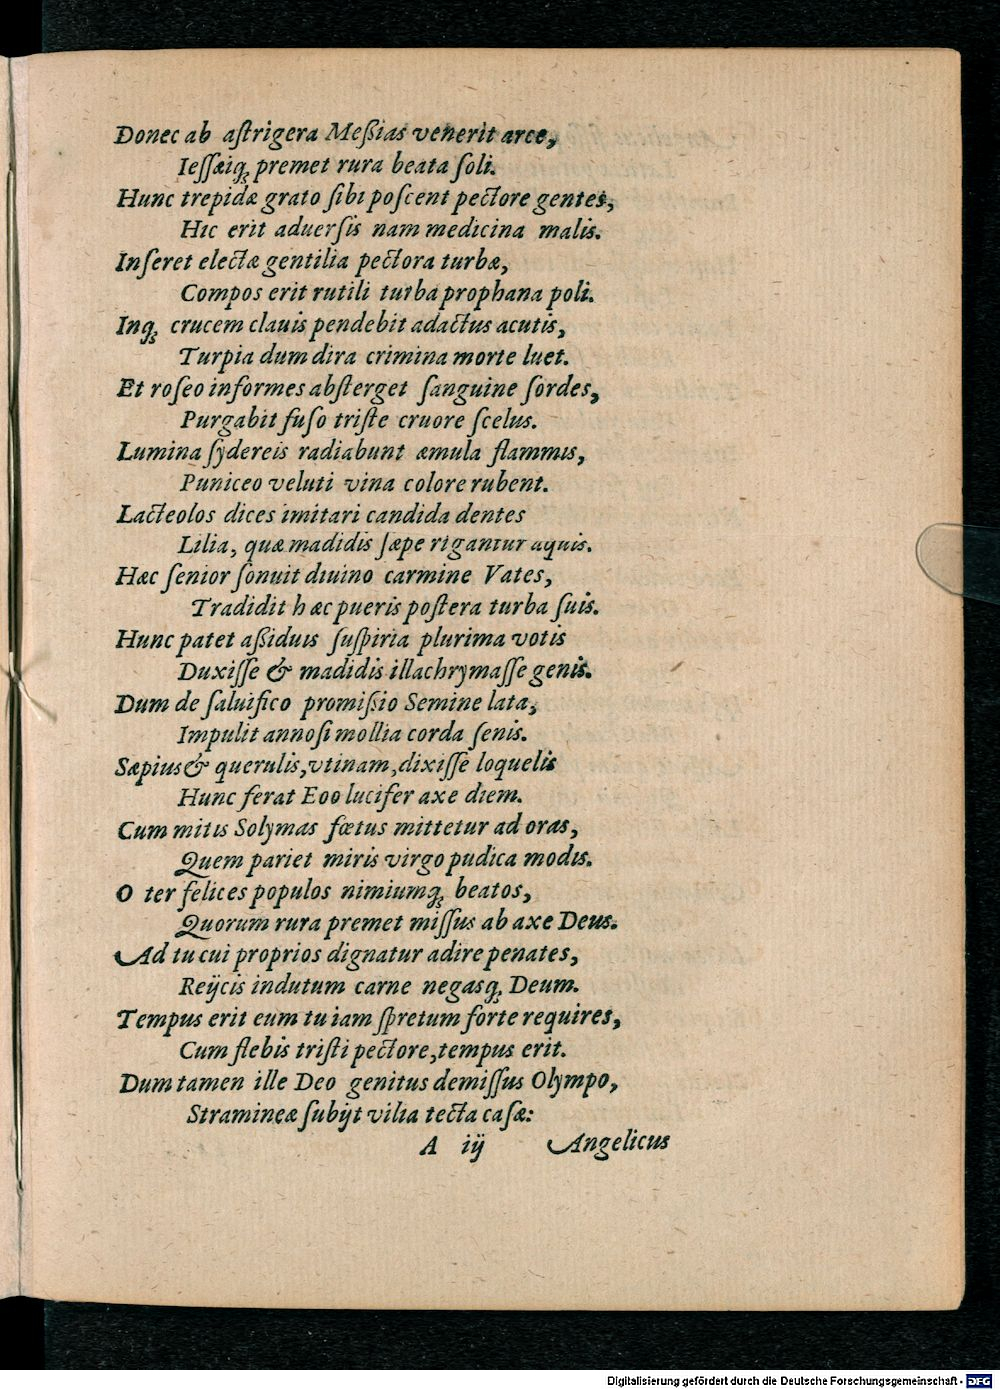 Donec ab aſtrigera Meßias venerit arce,
Ieſſæiq́ꝫ premet rura beata ſoli.
Hunc trepidæ grato ſibi poſcent pectore gentes,
Hic erit aduerſis nam medicina malis.
Inſeret electæ gentilia pectora turbæ,
Compos erit rutili turba prophana poli.
Inq́ꝫ crucem clauis pendebit adactus acutis,
Turpia dum dira crimina morte luet.
Et roſeo informes abſterget ſanguine ſordes,
Purgabit fuſo triſte cruore ſcelus.
Lumina ſydereis radiabunt æmula flammis,
Puniceo veluti vina colore rubent.
Lacteolos dices imitari candida dentes
Lilia, quæ madidis ſæpe rigantur aquis.
Hæc ſenior ſonuit diuino carmine Vates,
Tradidit hæc pueris poſtera turba ſuis.
Hunc patet aßiduis ſuſpiria plurima votis
Duxiſſe & madidis illachrymaſſe genis.
Dum de ſaluifico promißio Semine lata,
Impulit annoſi mollia corda ſenis.
Sæpius & querulis, vtinam, dixiſſe loquelis
Hunc ferat Eoo lucifer axe diem.
Cum mitis Solymas fœtus mittetur ad oras,
Quem pariet miris virgo pudica modis.
O ter felices populos nimiumq́ꝫ beatos,
Quorum rura premet miſſus ab axe Deus.
Ad tu cui proprios dignatur adire penates,
Reijcis indutum carne negasq́ꝫ Deum.
Tempus erit eum tu iam ſpretum forte requires,
Cum flebis triſti pectore, tempus erit.
Dum tamen ille Deo genitus demiſſus Olympo,
Stramineæ ſubijt vilia tecta caſæ:
A iij Angelicus
Digitalisierung gefördert durch die Deutsche Forschungsgemeinschaft - DFG